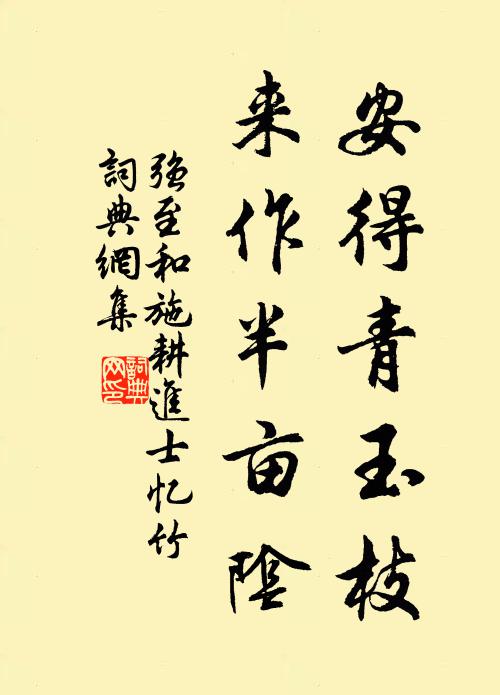 安得青玉枝
来作半亩陰
强至和施耕進士忆竹
詞典網集
詞典网印